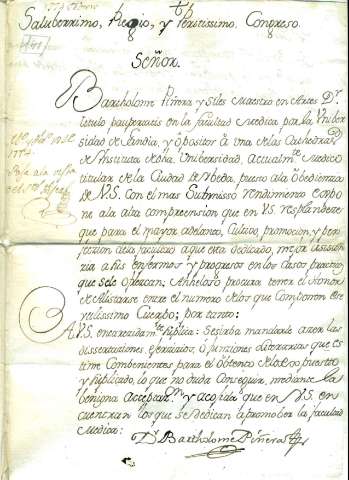 Saluberrimo, Regio, y Peritissimo. Congreso.
Señor.
Bartholome Piñera y Siles Maestro en Artes Dr.
titulo paupertatis en la facultad Medica por la Unibersidad
de Gandia, y opositor a una de las Cathedras
de Instituta de dha. Unibersidad, actualmte. Medico
titular de la Ciudad de Ubeda, puesto ala obediencia
de V.S. con el mas Submisso rendimiento expone
ala alta compreension que en V.S. resplandece
que para el mayor adelanto, Cultivo, promocion, y perfeccion
dela facultad a que esta dedicado, mejor asistencia
a los enfermos y progresos en los Casos practicos
que sele ofrezcan; Anheloso procura tener el honor
de Alistarse entre el numero delos que Componen este
Cuerpo; por tanto:
A V.S. encarecidamte. suplica: Se sirba mandarle acer las
dissertaciones, exercicios, o funciones literarias que estime
Combenientes para el obtento delo expuesto
y suplicado, lo que no duda Conseguir, mediante la
benigna acceptazn. y acojida que en V.S. encuentran
los que se dedican a promober la facultad
Medica:
Dr. Bartholome Piñera